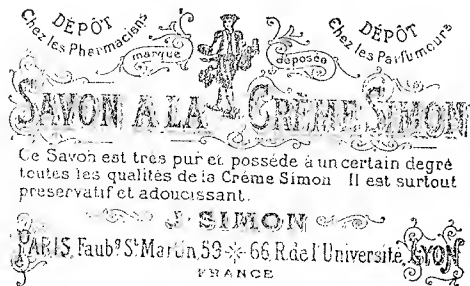 DÉPÔT
Chez les Pharmaciens
DÉPÔT
Chez les Parfumeurs
marque déposée
SAVON A LA CRÈME SIMON
Ce Savon est très pur et possède à un certain degré
toutes les qualités de la Crème Simon Il est surtout
preservatif et adoucissant.
J. SIMON
PARIS, Faubg St Martin, 59 - 66, R. de l'Université, LYON
FRANCE